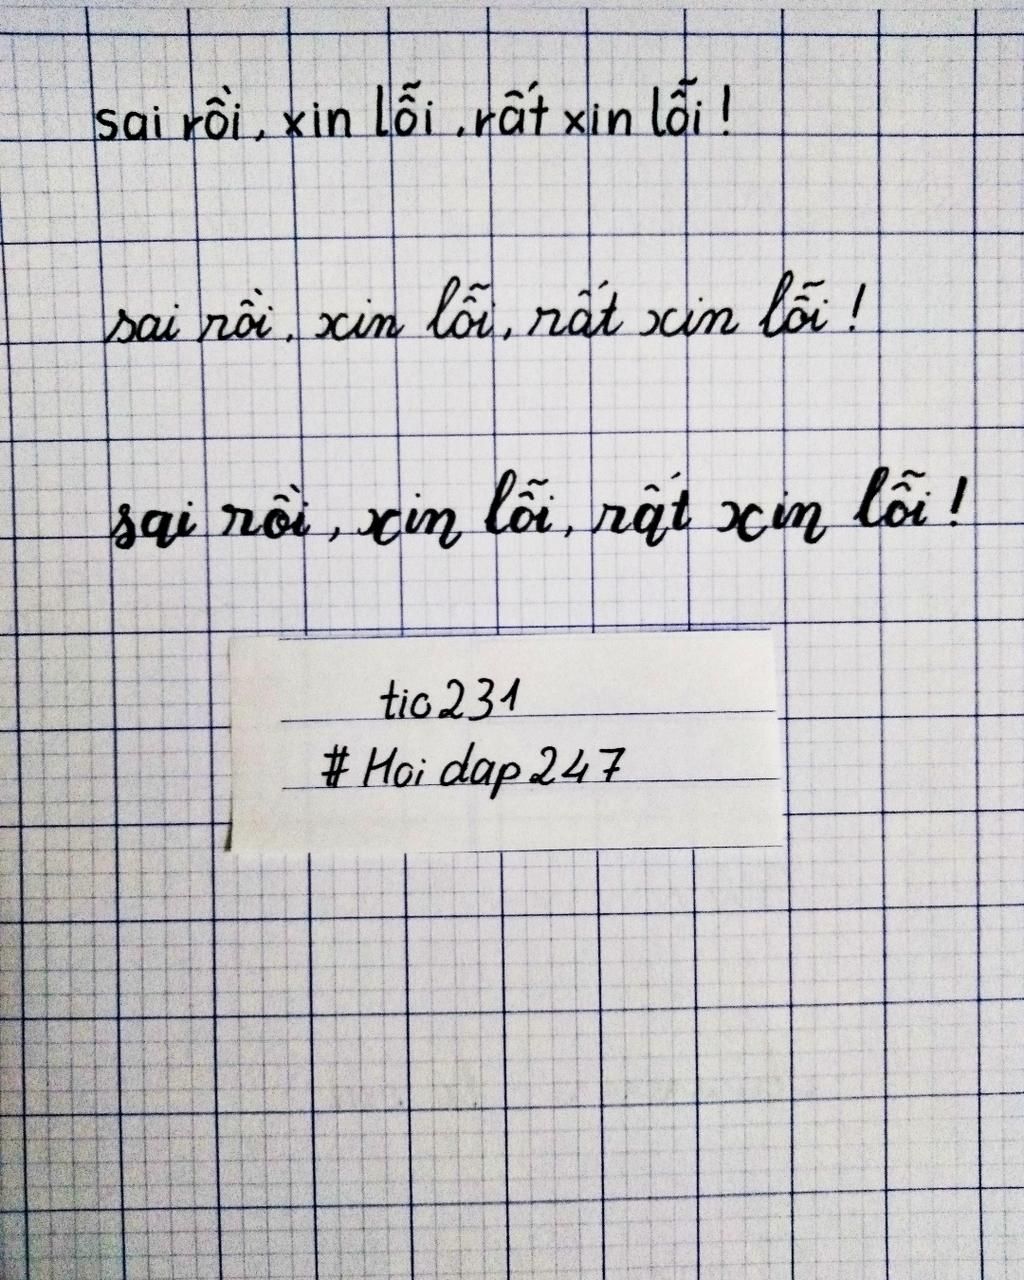 sai rồi, xin lỗi, rất xin lỗi!
sai rồi, xin lỗi, rất xin lỗi!
sai rồi, xin lỗi, rất xin lỗi!
tic231
#Hoidap247